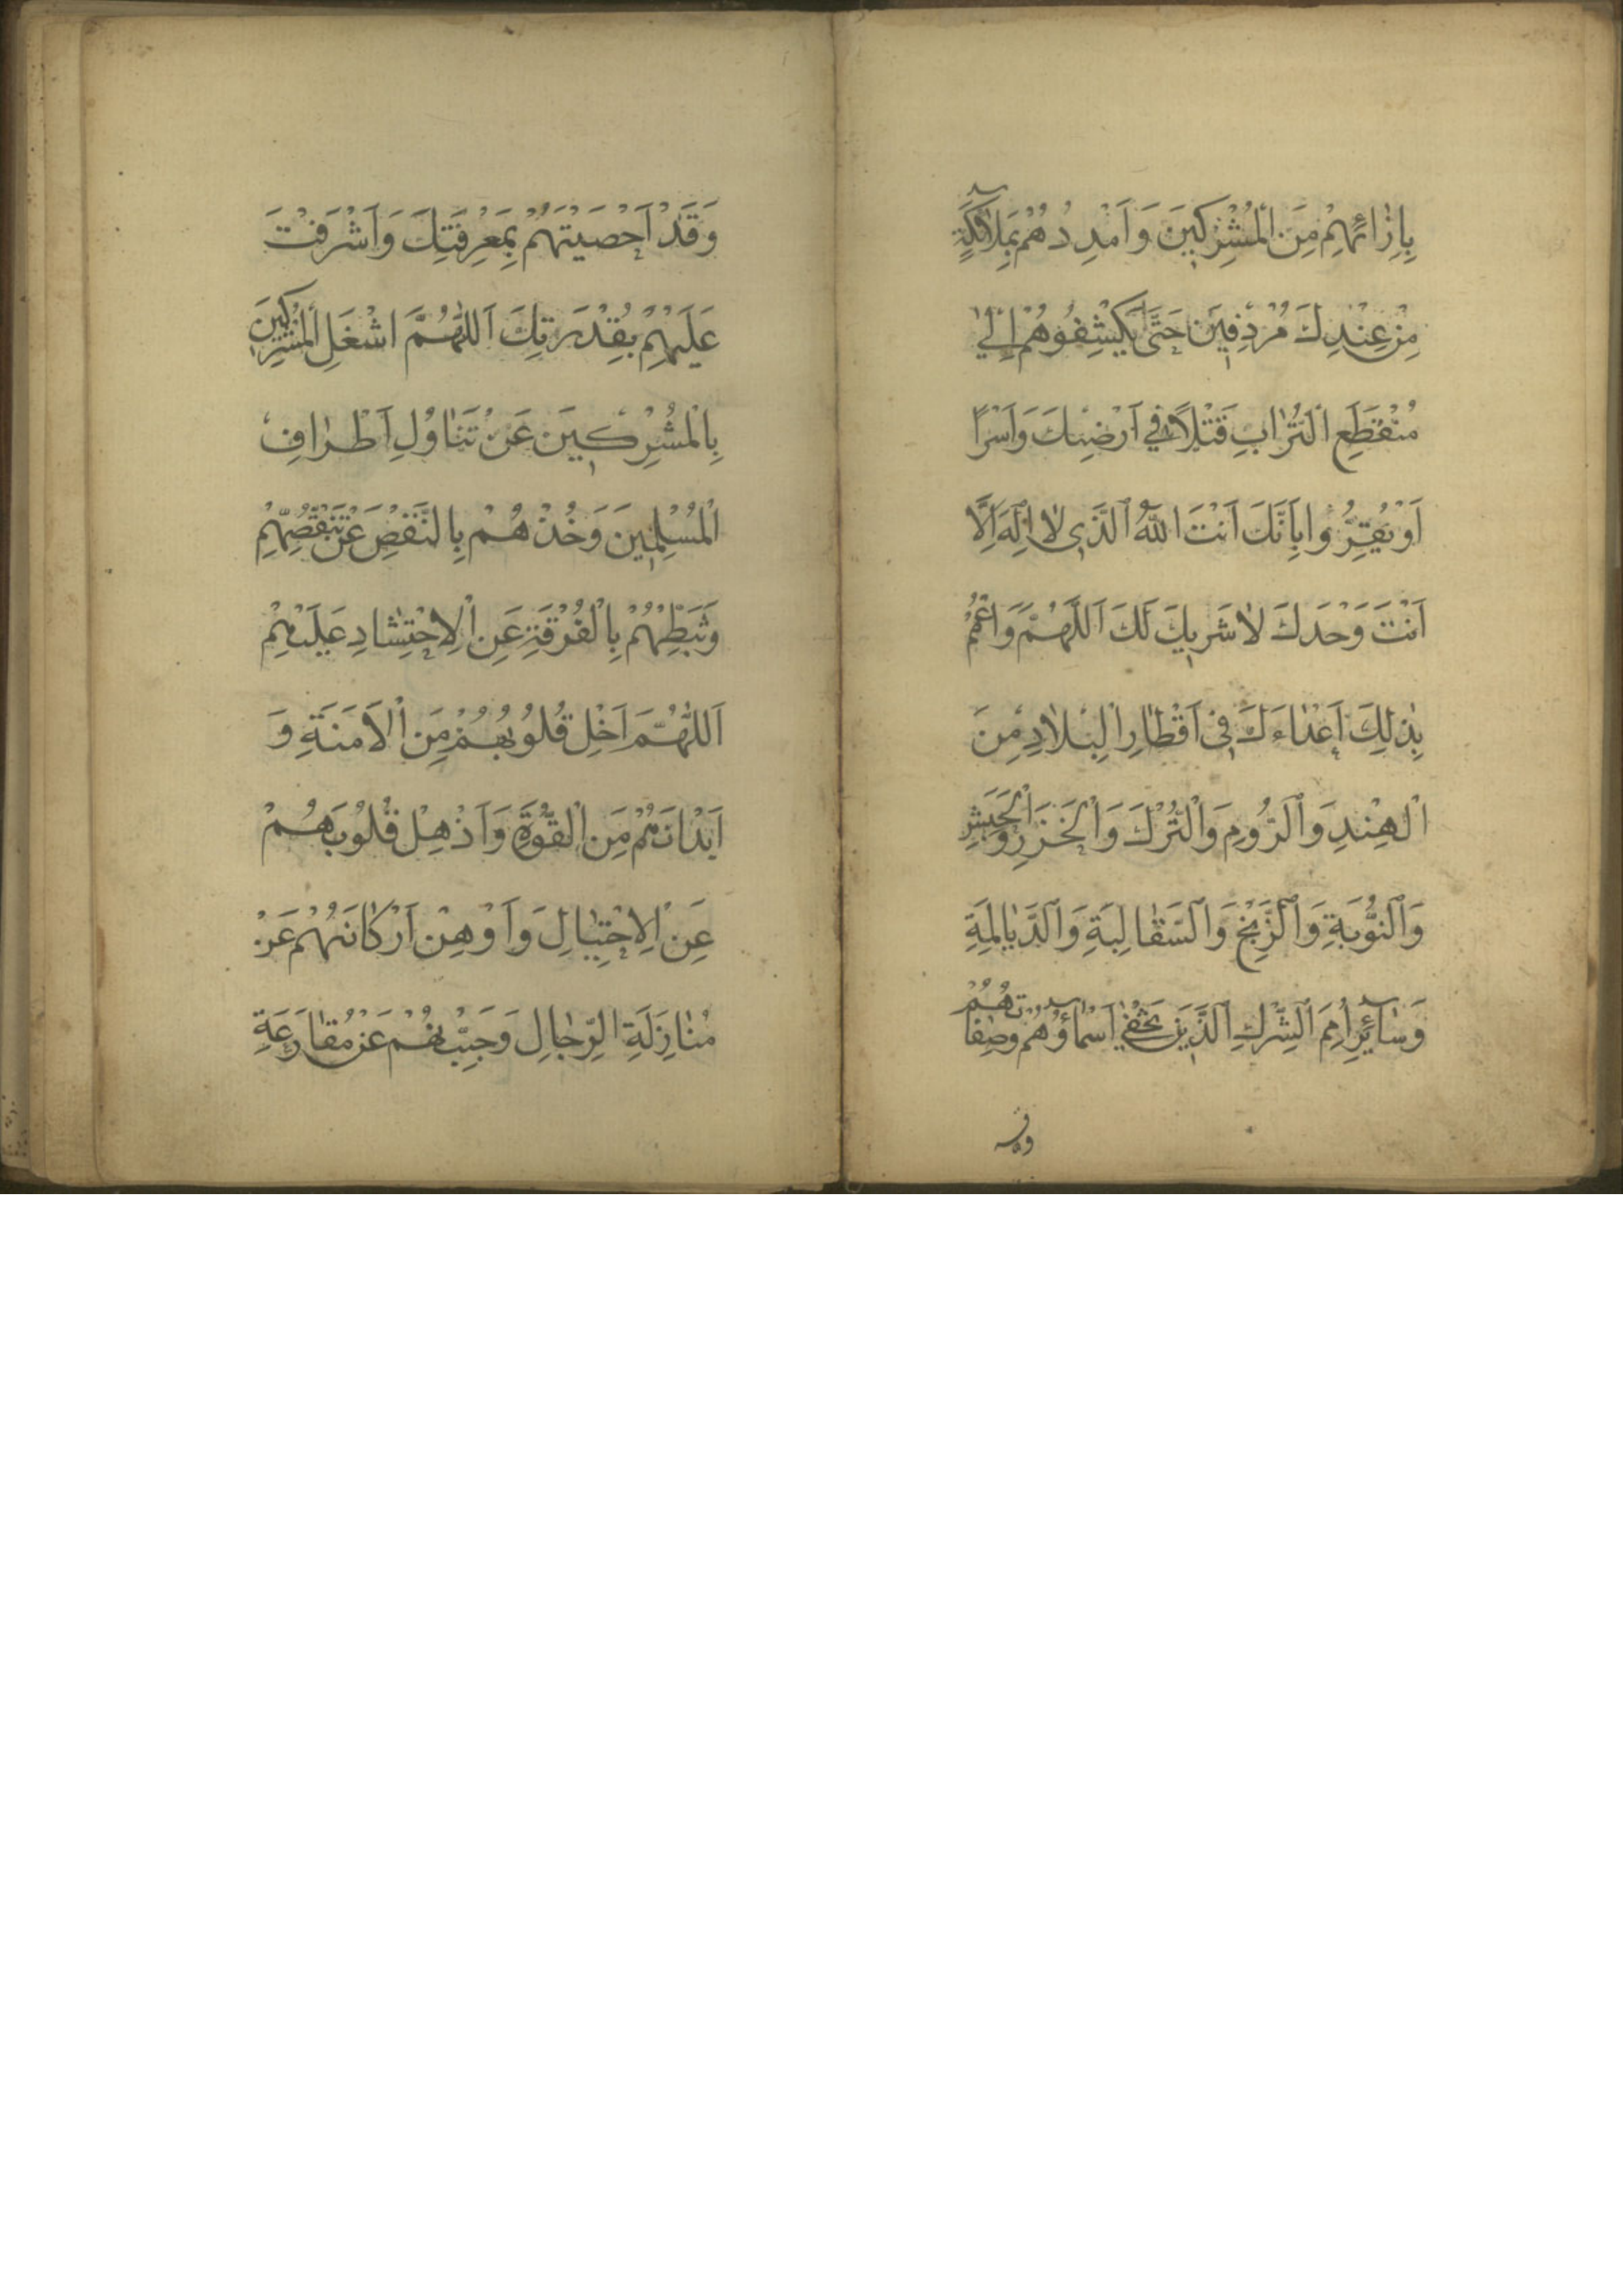 بِاِزٰائِهِمْ مِنَ الْمُشْرِكينَ وَ اَمْدِدْهُمْ بِمَلآئِكَةٍ
مِنْ عِنْدِكَ مُرْدِفينَ حَتّٰى يَكْشِفُوهُمْ اِلٰي
مُنْقَطَعِ الْتُّرٰابِ قَتْلًا في اَرْضِكَ وَاَسْرًا
اَوْ يُقِرُّوا بِاَنَّكَ اَنْتَ اللّٰهُ الَّذي لٰا اِلٰهَ اِلَّا
اَنْتَ وَحْدَكَ لٰا شَريكَ لَكَ اَللّٰهُمَّ وَاعْمُمْ
بِذٰلِكَ اَعْدٰاءَكَ في اَقْطٰارِ الْبِلٰادِ مِنَ
الْهِنْدِ وَالرُّومِ وَالْتُّرْكِ وَالْخَزَرِ وَالْحَبَشِ
وَالنُّوبَةِ وَالزَّنْجِ وَالسَّقٰالِبَةِ وَالدَّيٰالِمَةِ
وَسٰآئِرِ اُمَمِ الشِّرْكِ الَّذينَ يَخْفٰي اَسْمٰآؤُهُمْ وَصِفٰاتُهُمْ
وقد
وَقَدْ اَحْصَيْتَهُمْ بِمَعْرِفَتِكَ وَاَشْرَفْتَ
عَلَيْهِمْ بِقُدْرَتِكَ اَللّٰهُمَّ اشْغَلِ الْمُشْرِكينَ
بِالْمُشْرِكينَ عَنْ تَنٰاوُلِ اَطْرٰافِ
الْمُسْلِمينَ وَخُذْهُمْ بِالنَّقْصِ عَنْ تَنَقُّصِهِمْ
وَثَبِّطْهُمْ بِالْفُرْقَةِ عَنِ الْاِحْتِشٰادِ عَلَيْهِمْ
اَللّٰهُمَّ اَخْلِ قُلُوبَهُمْ مِنَ الْاَمَنَةِ وَ
اَبْدٰانَهُمْ مِنَ الْقُوَّةِ وَاَذْهِلْ قُلُوبَهُمْ
عَنِ الْاِحْتِيٰالِ وَاَوْهِنْ اَرْكٰانَهُمْ عَنْ
مُنٰازَلَةِ الرِّجٰالِ وَجَبِّنْهُمْ عَنْ مُقٰارَعَةِ